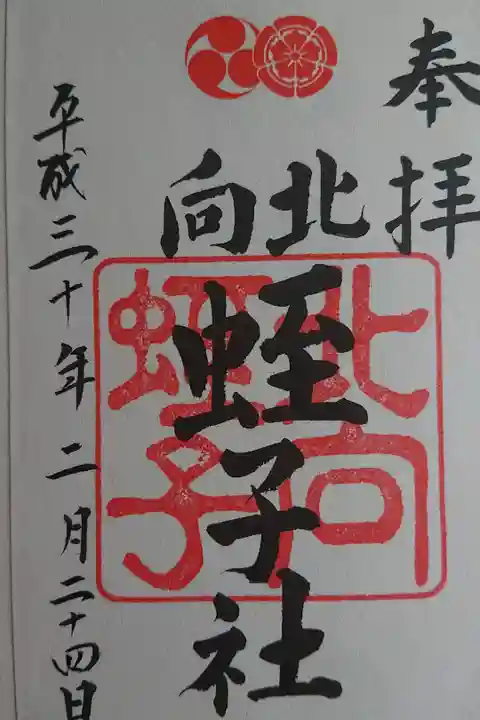 奉拝
北向
蛭子社
北向
蛭子
平成三十年二月二十四日